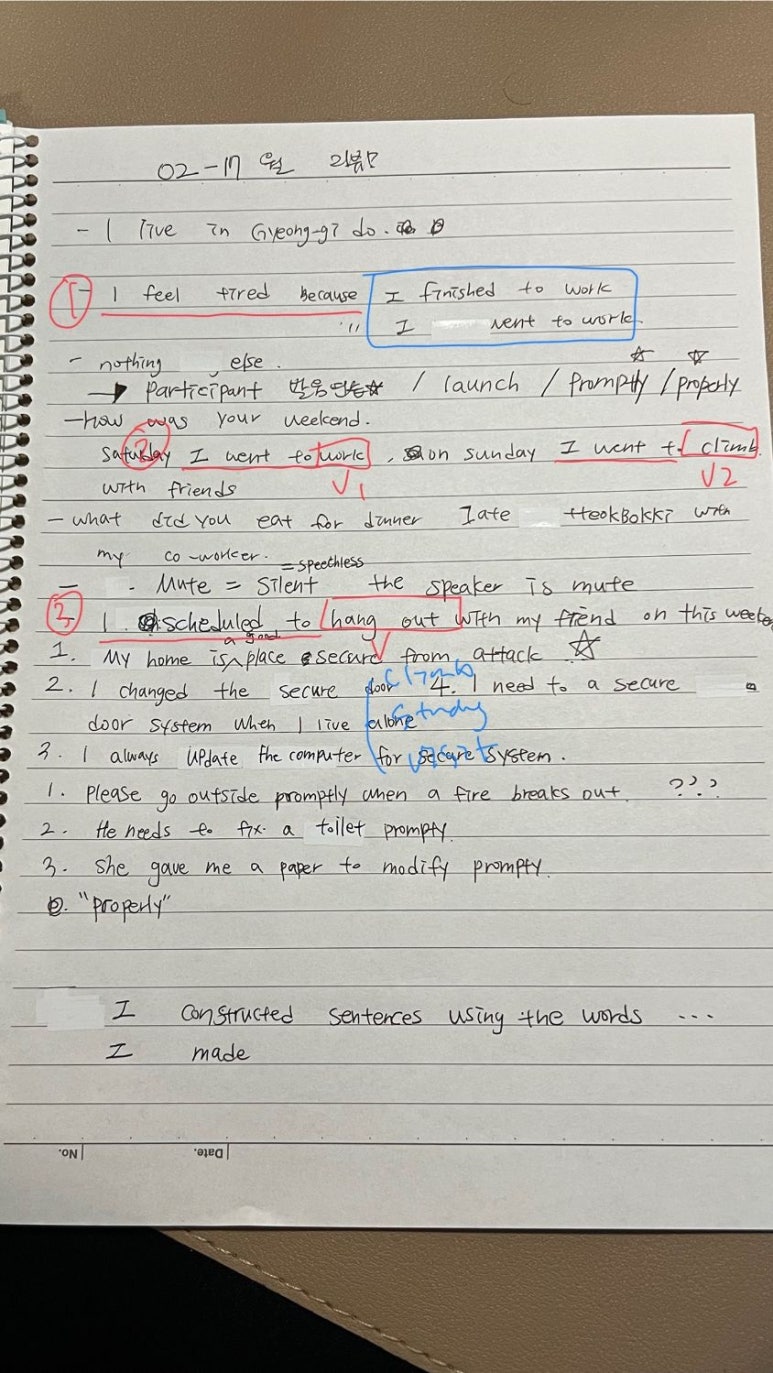 02-17 월 리뷰
- I live in Gyeong-gi do.
1 - I feel tired because I finished to work
" I went to work.
- nothing else.
→ Participant 발음 연습 ☆ / launch / Promptly / properly
- how was your weekend.
2 Saturday I went to work, on sunday I went to climb
V1 V2
with friends
- what did you eat for dinner I ate tteokBokki with
my co-worker.
= speechless
- Mute = Silent the speaker is mute
3 I scheduled to hang out with my friend on this
V
a good
1. My home is ^ place secure from attack ☆
2. I changed the secure door 4. I need to a secure
climb
door system when I live alone
study
3. I always update the computer for secure system.
1. Please go outside promptly when a fire breaks out. ???
2. He needs to fix a toilet prompty.
3. She gave me a paper to modify prompty.
"properly"
I constructed sentences using the words ...
I made
No. Date.